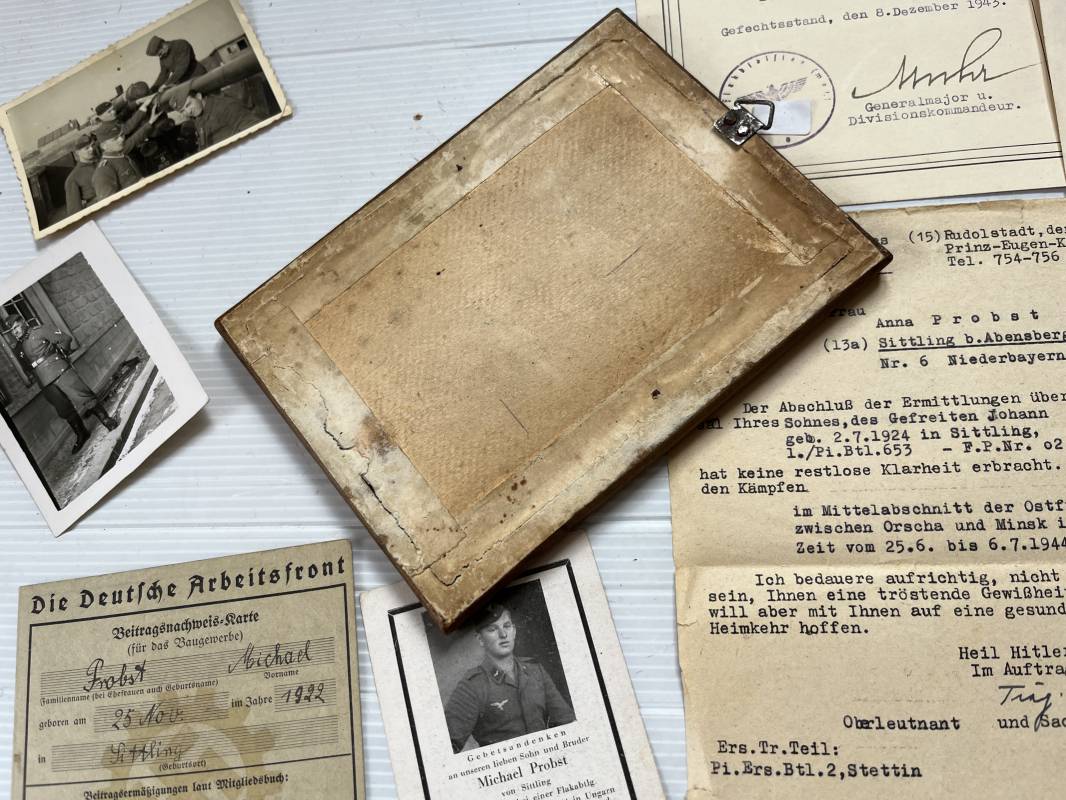 Gefechtsstand, den 8.Dezember 1943.
Generalmajor u.
Divisionskommandeur.
(15) Rudolstadt, den
Prinz-Eugen-K
Tel. 754-756
Frau
Anna Probst
(13a) Sittling b.Abensberg
Nr. 6 Niederbayern
Der Abschluß der Ermittlungen über
Ihres Sohnes, des Gefreiten Johann
geb. 2.7.1924 in Sittling,
1./Pi.Btl.653 - F.P.Nr. 02
hat keine restlose Klarheit erbracht.
den Kämpfen
im Mittelabschnitt der Ostf
zwischen Orscha und Minsk i
Zeit vom 25.6. bis 6.7.1944
Ich bedauere aufrichtig, nicht
sein, Ihnen eine tröstende Gewißhei
will aber mit Ihnen auf eine gesund
Heimkehr hoffen.
Heil Hitler
Im Auftra
Oberleutnant und Sac
Ers.Tr.Teil:
Pi.Ers.Btl.2,Stettin
Die Deutsche Arbeitsfront
Beitragsnachweis-Karte
(für das Baugewerbe)
Probst Michael
Familienname (bei Ehefrauen auch Geburtsname) Vorname
geboren am 25 Nov. im Jahre 1922
in Sittling
(Geburtsort)
Beitragsermäßigungen laut Mitgliedsbuch:
Gebetsandenken
an unseren lieben Sohn und Bruder
Michael Probst
von Sittling
bei einer Flakabtlg.
in Ungarn